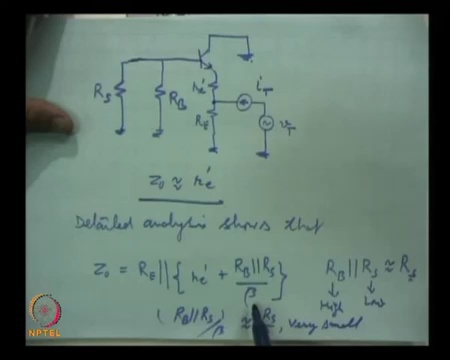 R_S
R_B
r'_e
R_E
i_T
v_T
Z_0 ≈ r'_e
Detailed analysis shows that
Z_0 = R_E || { r'_e + R_B || R_S / β } R_B || R_S ≈ R_S
High Low
( R_B || R_S ) / β ≈ R_S, very small
NPTEL